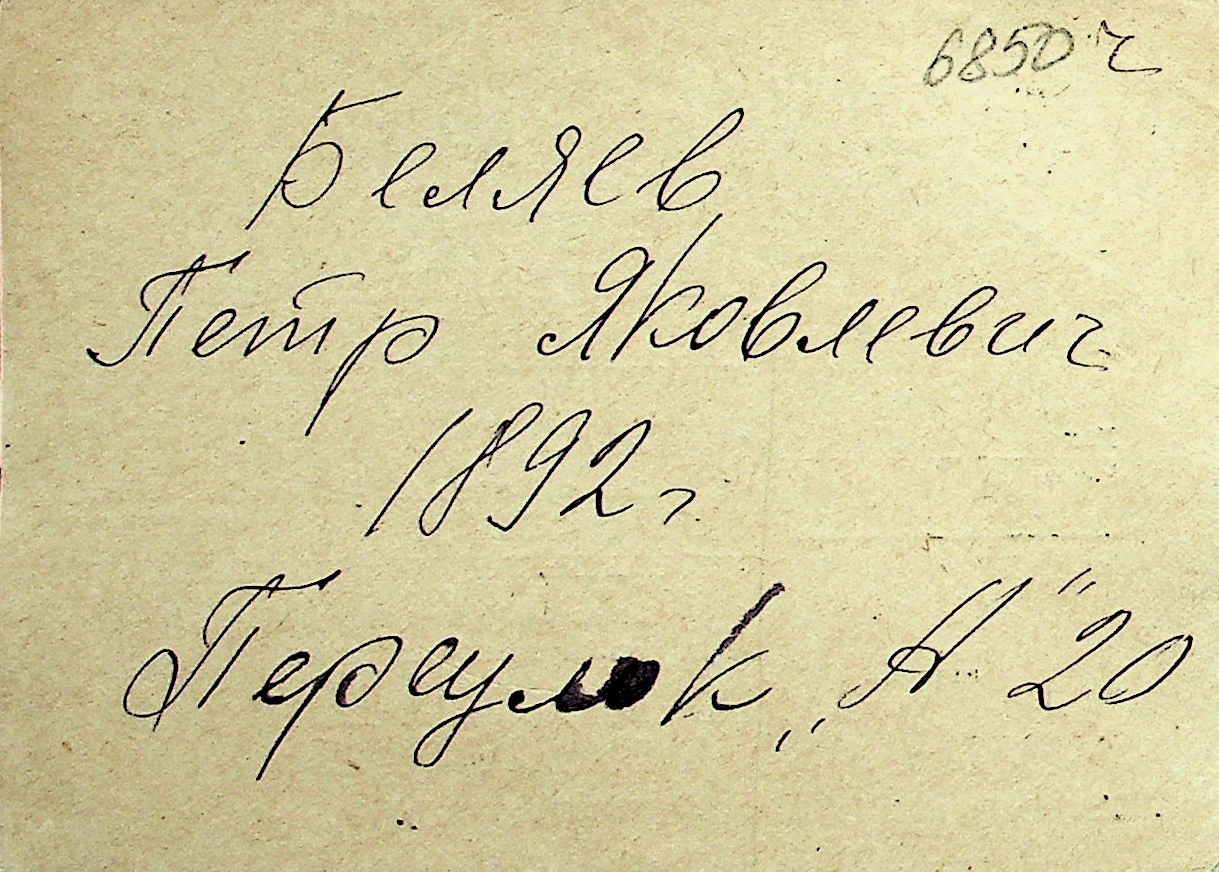 6850 ч
Беляев
Петр Яковлевич
1892 г
Переулок „А" 20